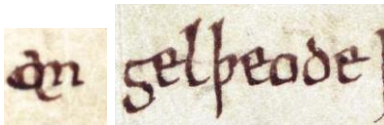 on gelþeode